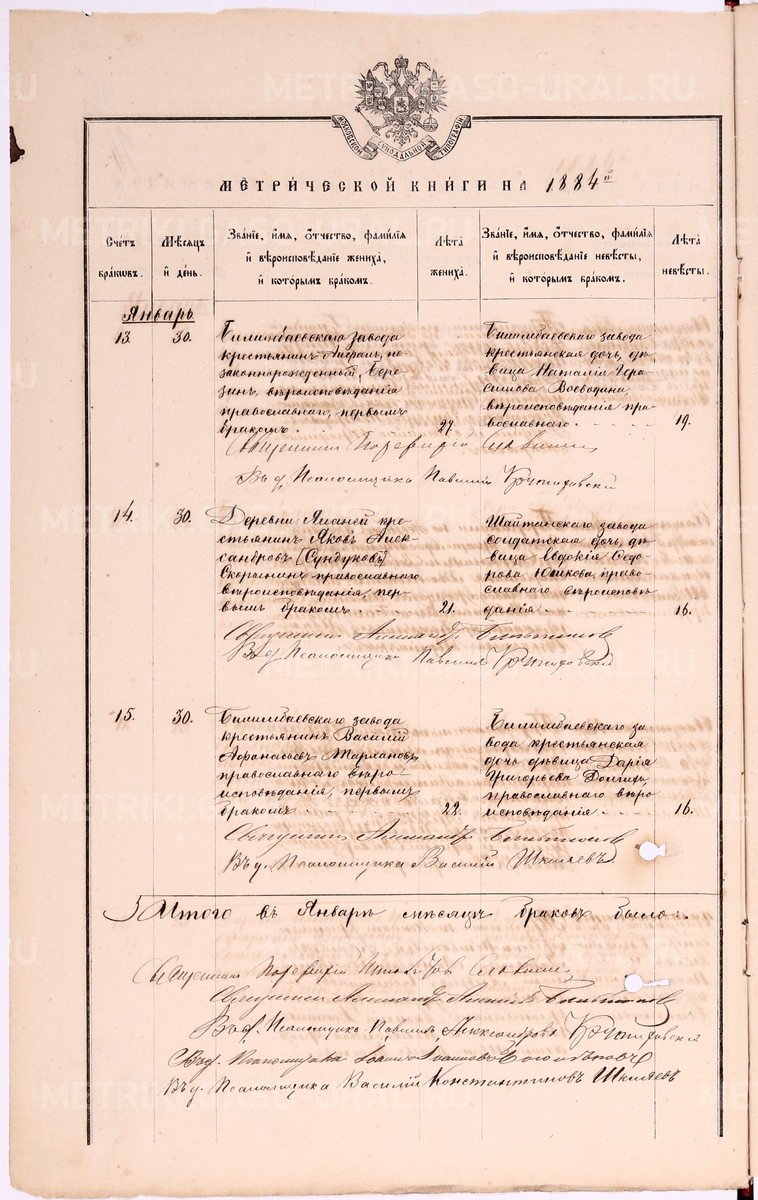 МОСКОВСКОЙ СИНОДАЛЬНОЙ ТИПОГРАФІИ
МЕТРИ́ЧЕСКОЙ КНИ́ГИ НА 1884й
Сче́тъ бра́ковъ.
Мѣ́сяцъ и҆ де́нь.
Зва́нїе, и҆́мя, ѻ҆́тчество, фами́лїя и҆ вѣроисповѣ́данїе жениха̀, и҆ кото́рымъ бра́комъ.
Лѣ́та жениха̀.
Зва́нїе, и҆́мя, ѻ҆́тчество, фами́лїя и҆ вѣроисповѣ́данїе невѣ́сты, и҆ кото́рымъ бра́комъ.
Лѣ́та невѣ́сты.
Январь
13.
30.
Билимбаевскаго завода
крестьянинъ не-
законнорожденный, Бере-
зинъ, вѣроисповѣданія
православнаго, первымъ
бракомъ.
27.
Билимбаевскаго завода
крестьянская дочь, дѣ-
вица Наталія Гера-
симова Воеводина,
вѣроисповѣданія пра-
вославнаго
19.
Священникъ Порфирій Славнинъ
Въ д. Псаломщика Павлинъ
14.
30.
Деревни кре-
стьянинъ Яковъ Алек-
сандровъ [Сундуковъ]
Скорынинъ православнаго
вѣроисповѣданія, пер-
вымъ бракомъ
21.
Шайтанскаго завода
солдатская дочь, дѣ-
вица Евдокія Ѳедо-
рова Юшкова, право-
славнаго вѣроисповѣ-
данія
16.
Священникъ Александръ
Въ д. Псаломщика Павлинъ
15.
30.
Билимбаевскаго завода
крестьянинъ Василій
Аѳанасьевъ
православнаго вѣро-
исповѣданія, первымъ
бракомъ
22.
Билимбаевскаго за-
вода крестьянская
дочь дѣвица Дарія
Григорьева Долгихъ,
православнаго вѣро
исповѣданія
16.
Священникъ Александръ
Въ д. Псаломщика Василій Шкляевъ
Итого въ Январѣ мѣсяцѣ браковъ было:
Священникъ Порфирій Славнинъ
Священникъ Александръ
Въ д. Псаломщика Павлинъ Александровъ
Въ д. Псаломщика Іоаннъ Іоанновъ Боголѣповъ
Въ д. Псаломщика Василій Константиновъ Шкляевъ